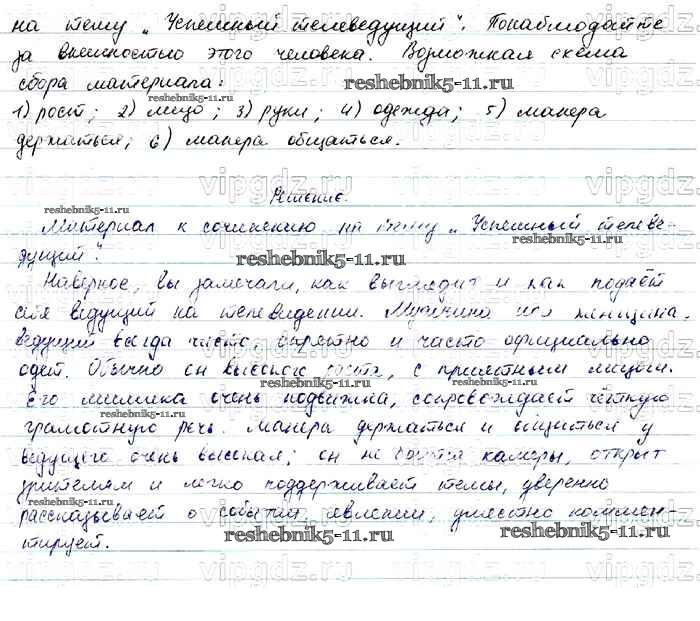 на тему „Успешный телеведущий". Понаблюдайте
за внешностью этого человека. Возможная схема
сбора материала:
1) рост; 2) лицо; 3) руки; 4) одежда; 5) манера
держаться; 6) манера общаться.
Решение.
Материал к сочинению на тему „Успешный телеве-
дущий".
Наверное, вы замечали, как выглядит и как подаёт
себя ведущий на телевидении. Мужчина или женщина-
ведущий всегда чисто, опрятно и часто официально
одет. Обычно он высокого роста, с приятным лицом.
Его мимика очень подвижна, сопровождает чёткую
грамотную речь. Манера держаться и общаться у
ведущего очень высокая; он не боится камеры, открыт
зрителям и легко поддерживает темы, уверенно
рассказывает о событии, явлении, уместно коммен-
тирует.
reshebnik5-11.ru
vipgdz.ru